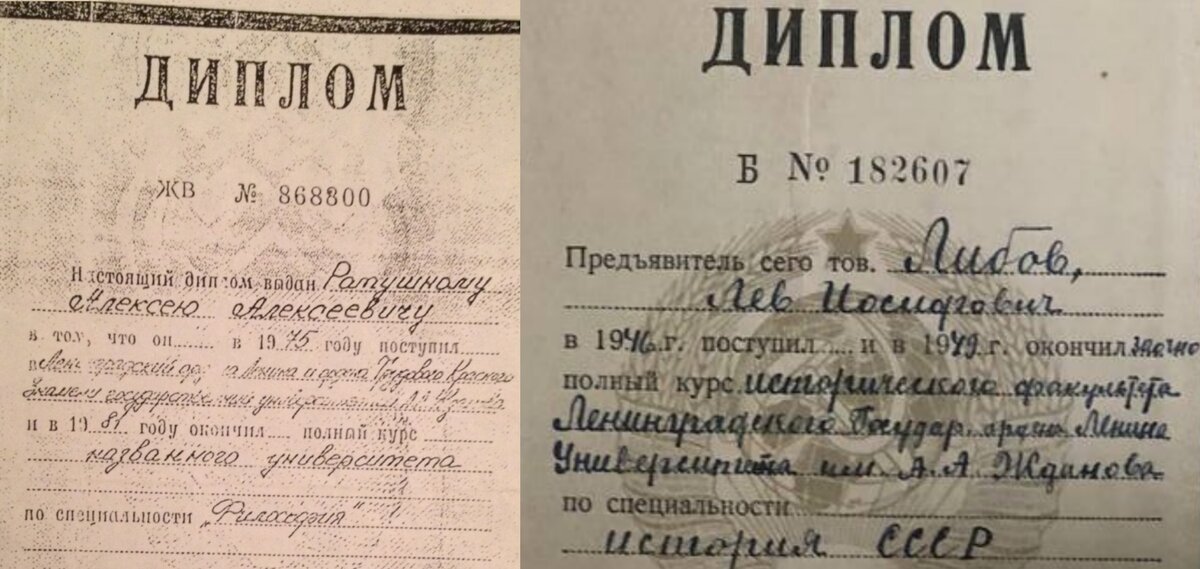 ДИПЛОМ
ЖВ № 868800
Настоящий диплом выдан Ратушному
Алексею Алексеевичу
в том, что он в 1975 году поступил
в Ленинградский ордена Ленина и ордена Трудового Красного
Знамени государственный университет им. А.А. Жданова
и в 1981 году окончил полный курс
названного университета
по специальности „Философия"
ДИПЛОМ
Б № 182607
Предъявитель сего тов. Либов,
Лев Иосифович
в 1946 г. поступил и в 1949 г. окончил заочно
полный курс исторического факультета
Ленинградского Государ. ордена Ленина
Университета им. А. А. Жданова
по специальности
история СССР